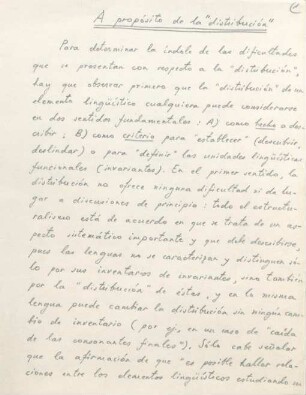 A propósito de la "distribución"
Para determinar la índole de las dificultades
que se presentan con respecto a la "distribución",
hay que observar primero que la "distribución" de un
elemento lingüístico cualquiera puede considerarse
en dos sentidos fundamentales: A) como hecho a des-
cribir; B) como criterio para "establecer" (descubrir,
deslindar) o para "definir" las unidades lingüísticas
funcionales (invariantes). En el primer sentido, la
distribución no ofrece ninguna dificultad ni da lu-
gar a discusiones de principio: todo el estructu-
ralismo está de acuerdo en que se trata de un as-
pecto sistemático importante y que debe describirse,
pues las lenguas no se caracterizan y distinguen só-
lo por sus inventarios de invariantes, sino también
por la "distribución" de éstas, y en la misma
lengua puede cambiar la distribución sin ningún cam-
bio de inventario (por ej., en un caso de "caída
de las consonantes finales"). Sólo cabe señalar
que la afirmación de que "es posible hallar rela-
ciones entre los elementos lingüísticos estudiando